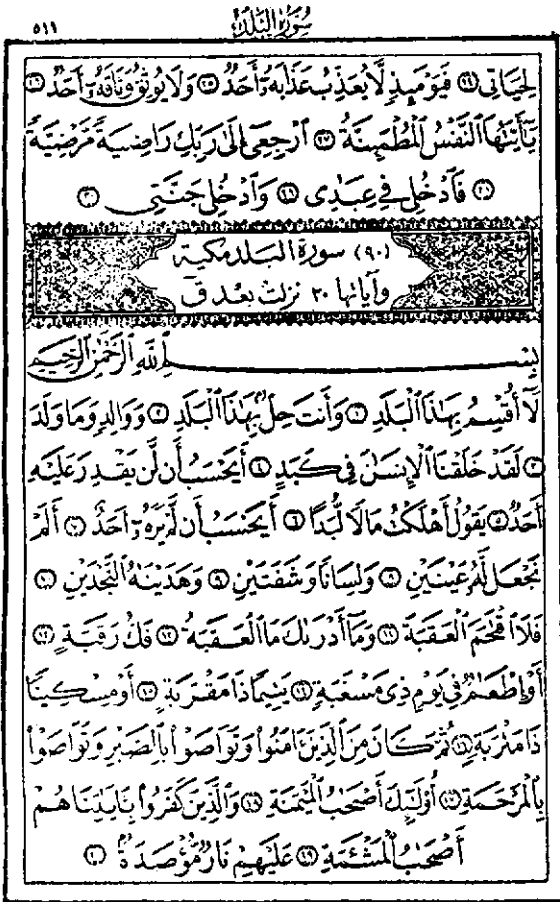 سُورَةُ الْبَلَدِ ٥١١
لِحَيَاتِى ٢٤ فَيَوْمَئِذٍ لَّا يُعَذِّبُ عَذَابَهُۥٓ أَحَدٌ ٢٥ وَلَا يُوثِقُ وَثَاقَهُۥٓ أَحَدٌ ٢٦
يَٰٓأَيَّتُهَا ٱلنَّفْسُ ٱلْمُطْمَئِنَّةُ ٢٧ ٱرْجِعِىٓ إِلَىٰ رَبِّكِ رَاضِيَةً مَّرْضِيَّةً
٢٨ فَٱدْخُلِى فِى عِبَٰدِى ٢٩ وَٱدْخُلِى جَنَّتِى ٣٠
(٩٠) سورة البلد مكية
وآياتها ٢٠ نزلت بعد قٓ
بِسْمِ ٱللَّهِ ٱلرَّحْمَٰنِ ٱلرَّحِيمِ
لَآ أُقْسِمُ بِهَٰذَا ٱلْبَلَدِ ١ وَأَنتَ حِلٌّۢ بِهَٰذَا ٱلْبَلَدِ ٢ وَوَالِدٍ وَمَا وَلَدَ
٣ لَقَدْ خَلَقْنَا ٱلْإِنسَٰنَ فِى كَبَدٍ ٤ أَيَحْسَبُ أَن لَّن يَقْدِرَ عَلَيْهِ
أَحَدٌ ٥ يَقُولُ أَهْلَكْتُ مَالًا لُّبَدًا ٦ أَيَحْسَبُ أَن لَّمْ يَرَهُۥٓ أَحَدٌ ٧ أَلَمْ
نَجْعَل لَّهُۥ عَيْنَيْنِ ٨ وَلِسَانًا وَشَفَتَيْنِ ٩ وَهَدَيْنَٰهُ ٱلنَّجْدَيْنِ ١٠
فَلَا ٱقْتَحَمَ ٱلْعَقَبَةَ ١١ وَمَآ أَدْرَىٰكَ مَا ٱلْعَقَبَةُ ١٢ فَكُّ رَقَبَةٍ ١٣
أَوْ إِطْعَٰمٌ فِى يَوْمٍ ذِى مَسْغَبَةٍ ١٤ يَتِيمًا ذَا مَقْرَبَةٍ ١٥ أَوْ مِسْكِينًا
ذَا مَتْرَبَةٍ ١٦ ثُمَّ كَانَ مِنَ ٱلَّذِينَ ءَامَنُوا۟ وَتَوَاصَوْا۟ بِٱلصَّبْرِ وَتَوَاصَوْا۟
بِٱلْمَرْحَمَةِ ١٧ أُو۟لَٰٓئِكَ أَصْحَٰبُ ٱلْمَيْمَنَةِ ١٨ وَٱلَّذِينَ كَفَرُوا۟ بِـَٔايَٰتِنَا هُمْ
أَصْحَٰبُ ٱلْمَشْـَٔمَةِ ١٩ عَلَيْهِمْ نَارٌ مُّؤْصَدَةٌۢ ٢٠